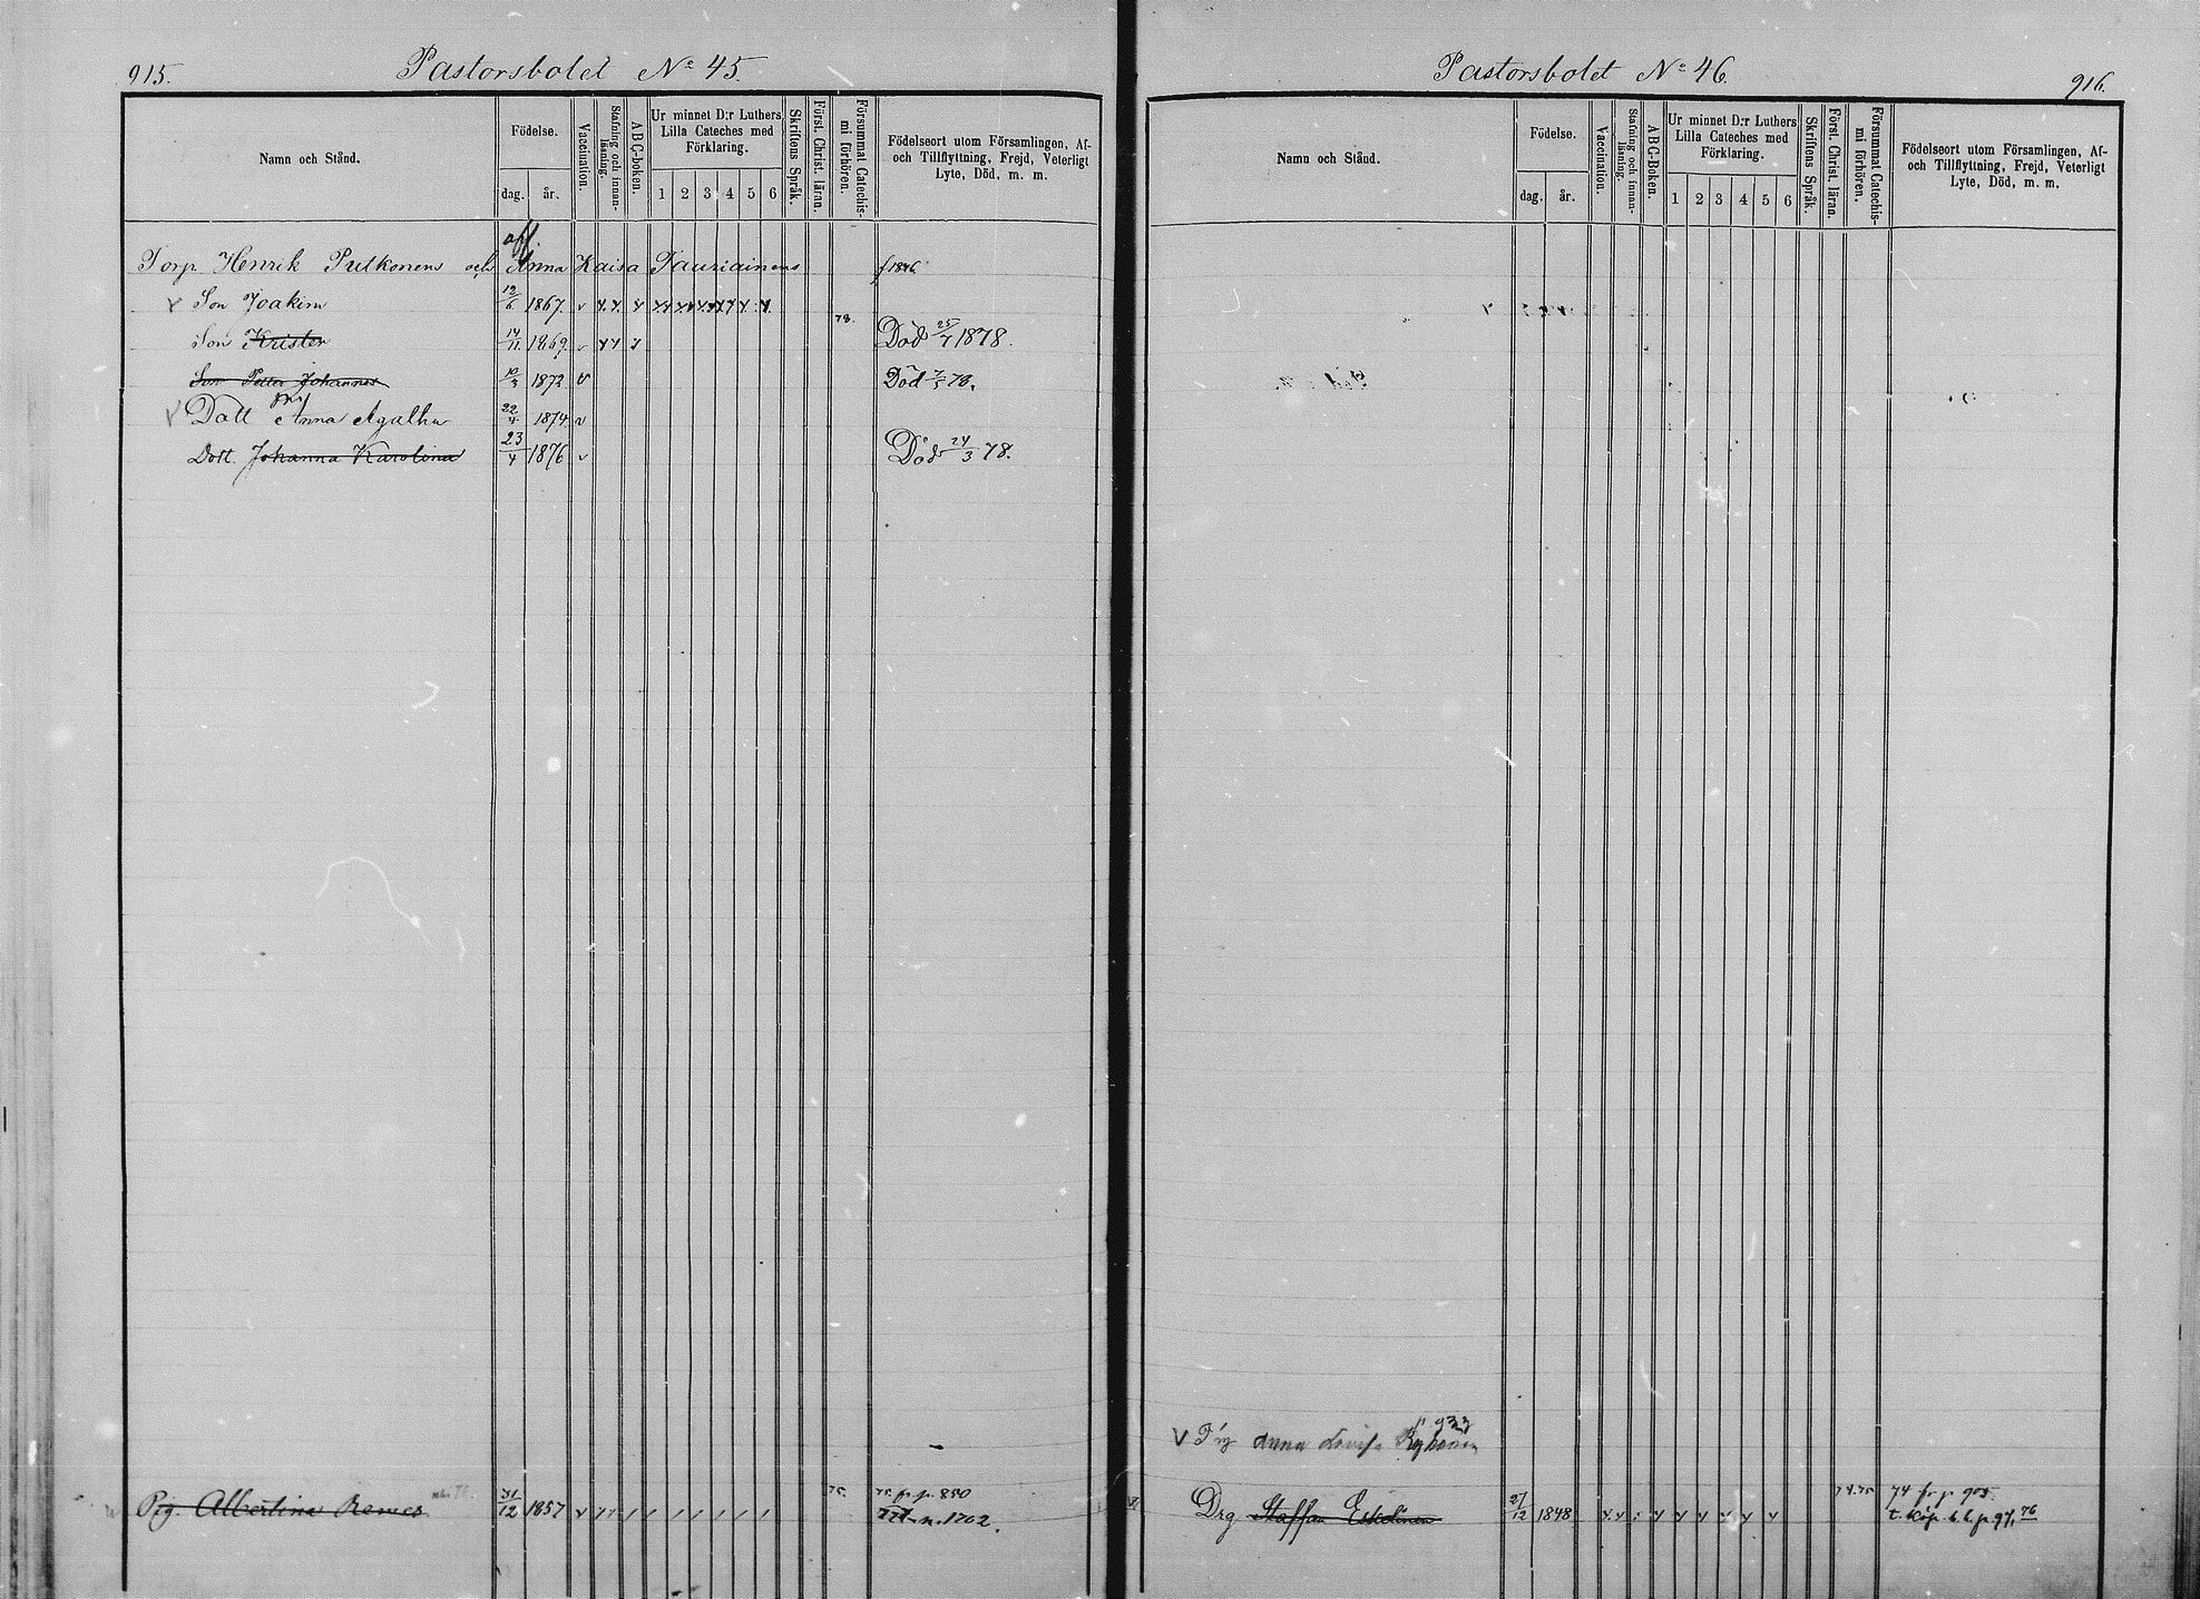 915.
Pastorsbolet No 45.
Namn och Stånd.
Födelse.
dag.
år.
Vaccination.
Stafning och innan-
läsning.
ABC-boken.
Ur minnet D:r Luthers
Lilla Cateches med
Förklaring.
1 2 3 4 5 6
Skriftens Språk.
Först. Christ. läran.
Försummat Catechis-
mi förhören.
Födelseort utom Församlingen, Af-
och Tillflyttning, Frejd, Veterligt
Lyte, Död, m. m.
Torp Henrik Putkonens och Anna Kaisa Tauriainens f 1846
Son Joakim 12/6 1867.
Son Krister 14/11 1869. 78. Död 25/4 1878.
Son Petter Johannes 10/3 1872 Död 7/5 78.
Dott Anna Agatha 22/4 1874
Dott. Johanna Karolina 23/4 1876 Död 24/3 78.
75. fr. p. 850
Pig. Albertina Remes 31/12 1857 75. n. 1702.
Pastorsbolet No 46.
916.
Namn och Stånd.
Födelse.
dag.
år.
Vaccination.
Stafning och innan-
läsning.
ABC-Boken.
Ur minnet D:r Luthers
Lilla Cateches med
Förklaring.
1 2 3 4 5 6
Skriftens Språk.
Först. Christ. läran.
Försummat Catechis-
mi förhören.
Födelseort utom Församlingen, Af-
och Tillflyttning, Frejd, Veterligt
Lyte, Död, m. m.
p 933
Anna Lovisa
74.75 74 fr p 905.
Drg Staffan Eskelinen 27/12 1848 t. Köp. b. b. p. 97, 76